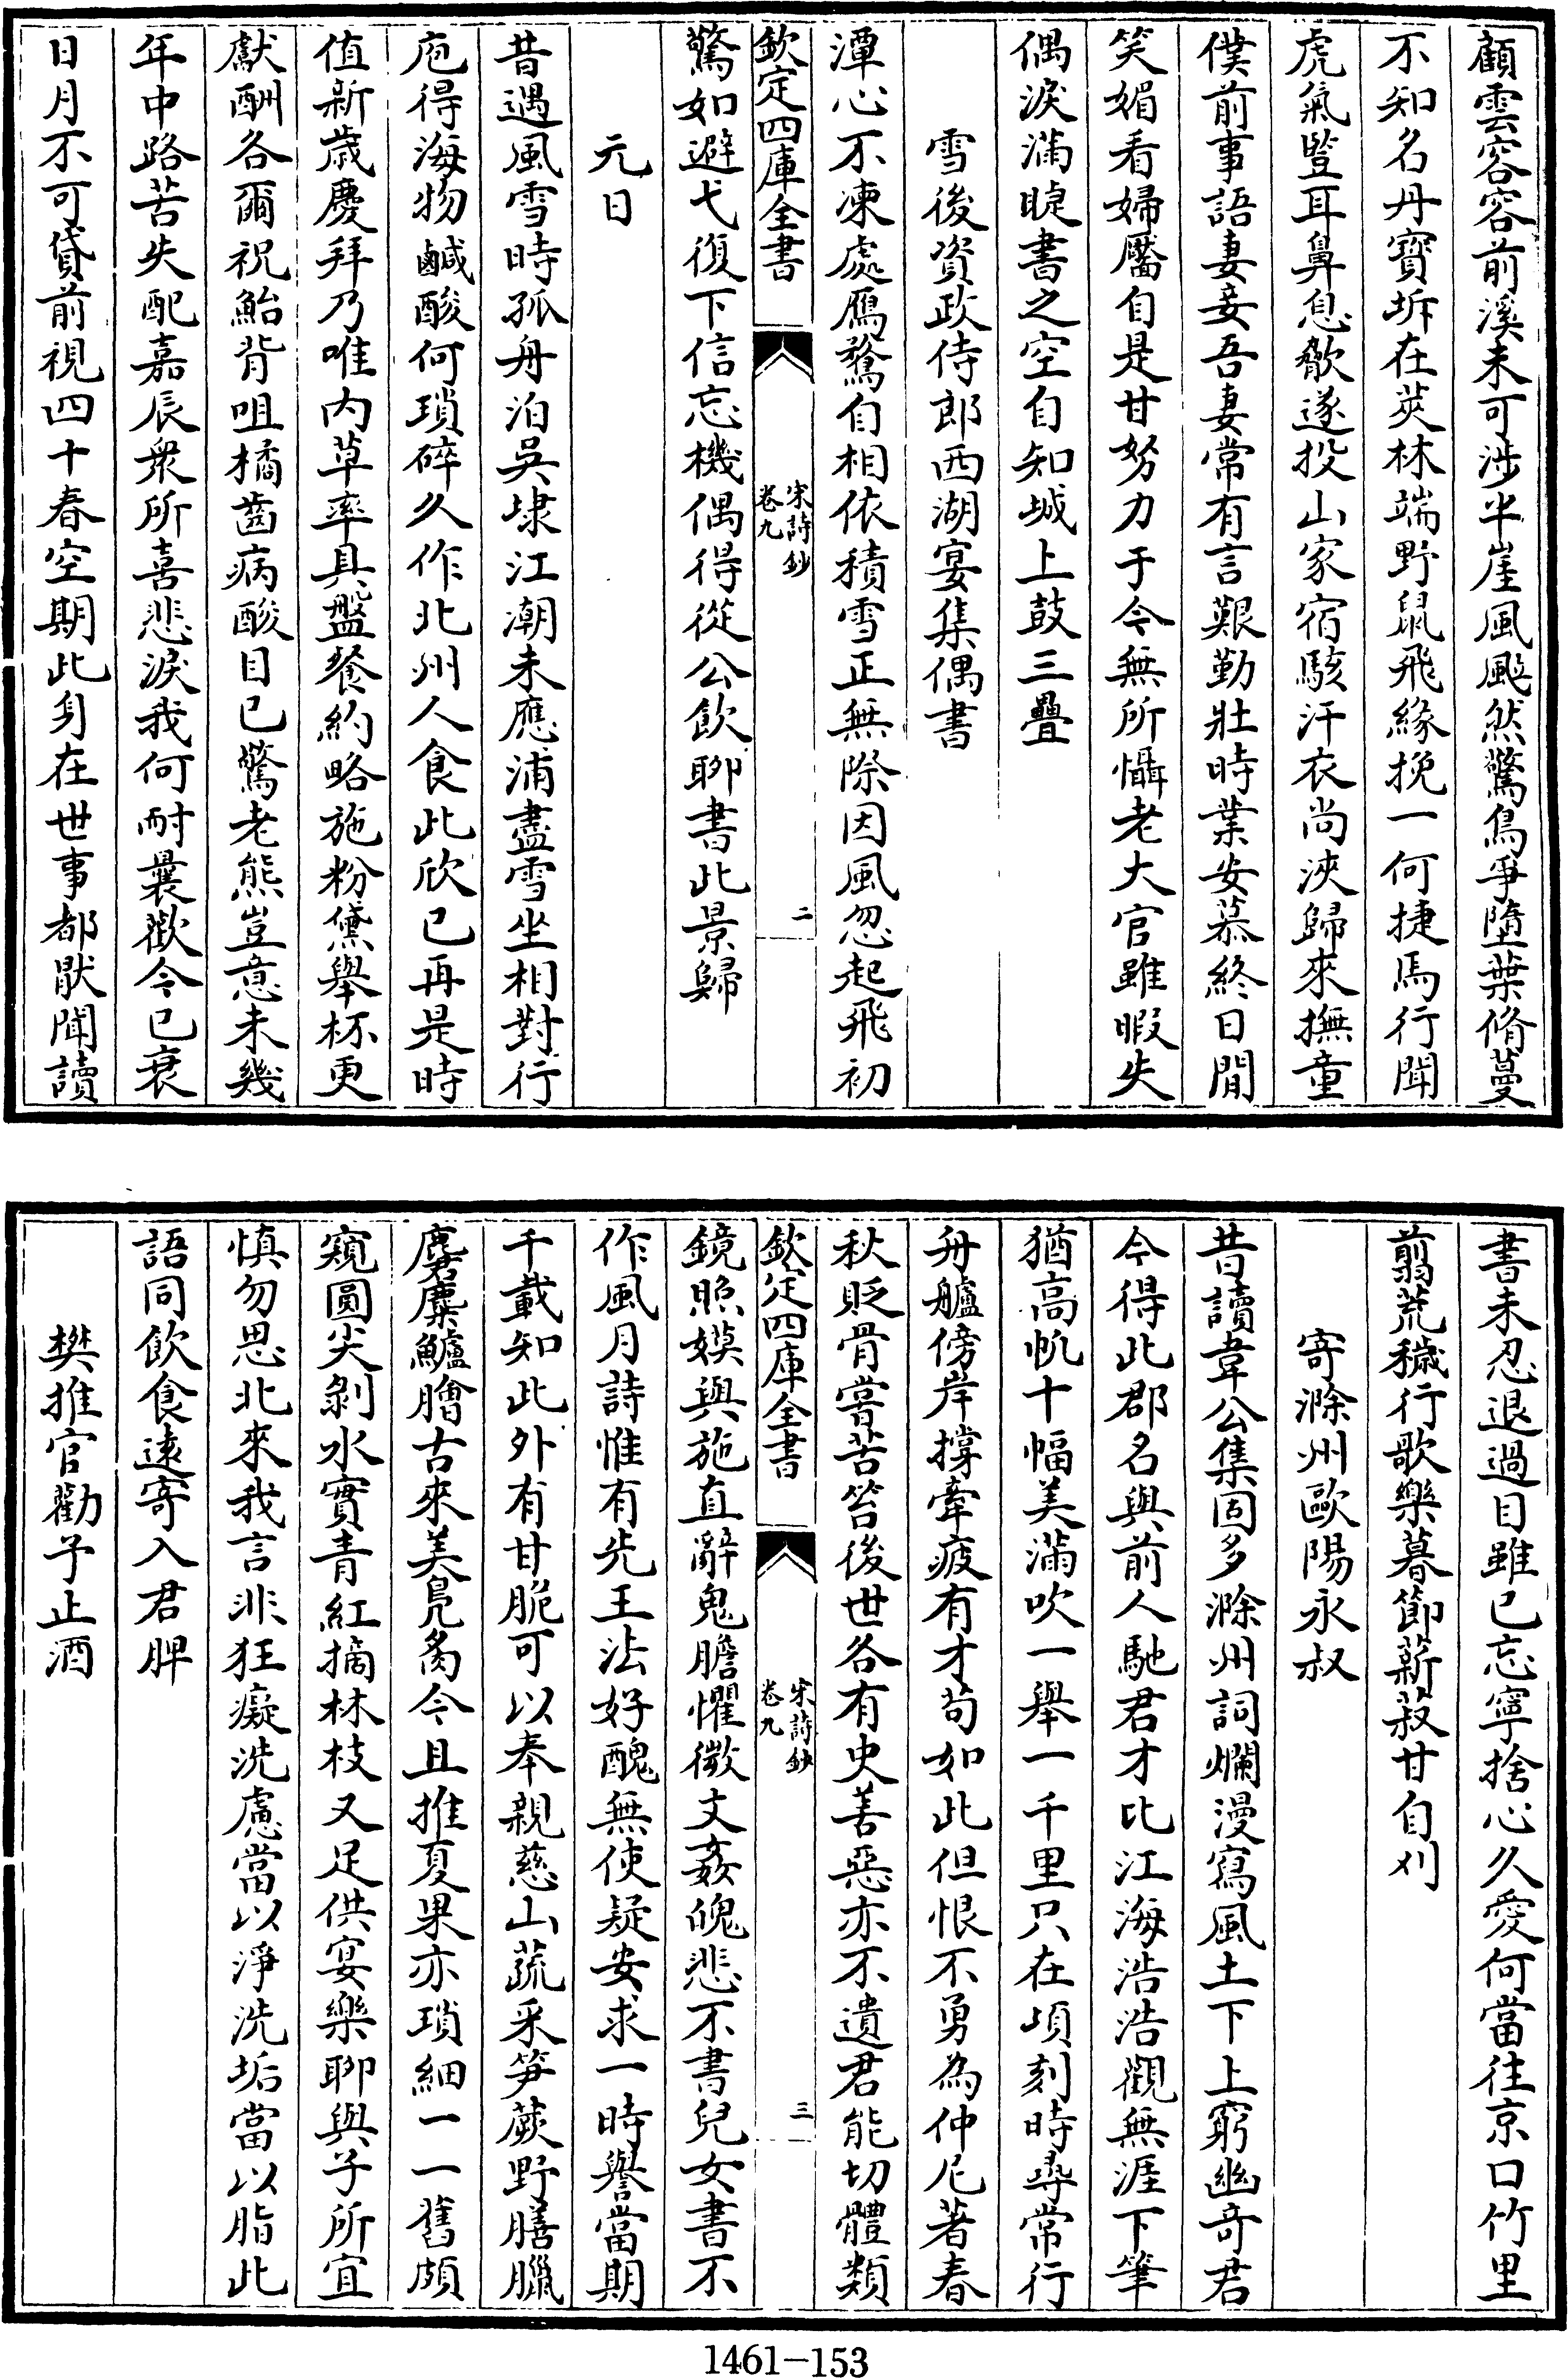 顧雲容容前溪未可涉半崖風飈然驚鳥爭墮葉脩蔓
不知名丹寶坼在莢林端野鼠飛緣挽一何捷馬行聞
虎氣豎耳鼻息歙遂投山家宿駭汗衣尚浹歸來撫童
僕前事語妻妾吾妻常有言艱勤壯時業安慕終日閒
笑媚看婦靨自是甘努力于今無所懾老大官雖暇失
偶淚滿睫書之空自知城上鼓三疊
雪後資政侍郎西湖宴集偶書
潭心不凍處鴈鶩自相依積雪正無際因風忽起飛初
欽定四庫全書
宋詩鈔
卷九
二
驚如避弋復下信忘機偶得從公飲聊書此景歸
元日
昔遇風雪時孤舟泊吳埭江潮未應浦盡雪坐相對行
庖得海物鹹酸何瑣碎久作北州人食此欣已再是時
值新歲慶拜乃唯內草率具盤餐約略施粉黛舉杯更
獻酬各爾祝鮐背咀橘齒病酸目已驚老熊豈意未幾
年中路苦失配嘉辰衆所喜悲淚我何耐曩歡今已衰
日月不可貸前視四十春空期此身在世事都厭聞讀
書未忍退過目雖已忘寧捨心久愛何當往京口竹里
翦荒穢行歌樂暮節薪菽甘自刈
寄滁州歐陽永叔
昔讀韋公集固多滁州詞爛漫寫風土下上窮幽奇君
今得此郡名與前人馳君才比江海浩浩觀無涯下筆
猶高帆十幅美滿吹一舉一千里只在頃刻時尋常行
舟艫傍岸撐牽疲有才苟如此但恨不勇為仲尼著春
秋貶骨嘗苦笞後世各有史善惡亦不遺君能切體類
欽定四庫全書
宋詩鈔
卷九
三
鏡照嫫與施直辭鬼膽懼微文姦魄悲不書兒女書不
作風月詩惟有先王法好醜無使疑安求一時譽當期
千載知此外有甘脆可以奉親慈山蔬采筍蕨野膳臘
麏麋鱸膾古來美鳧臛今且推夏果亦瑣細一一舊頗
窺圓尖剝水實青紅摘林枝又足供宴樂聊與子所宜
慎勿思北來我言非狂癡洗慮當以淨洗垢當以脂此
語同飲食遠寄入君脾
樊推官勸予止酒
1461-153